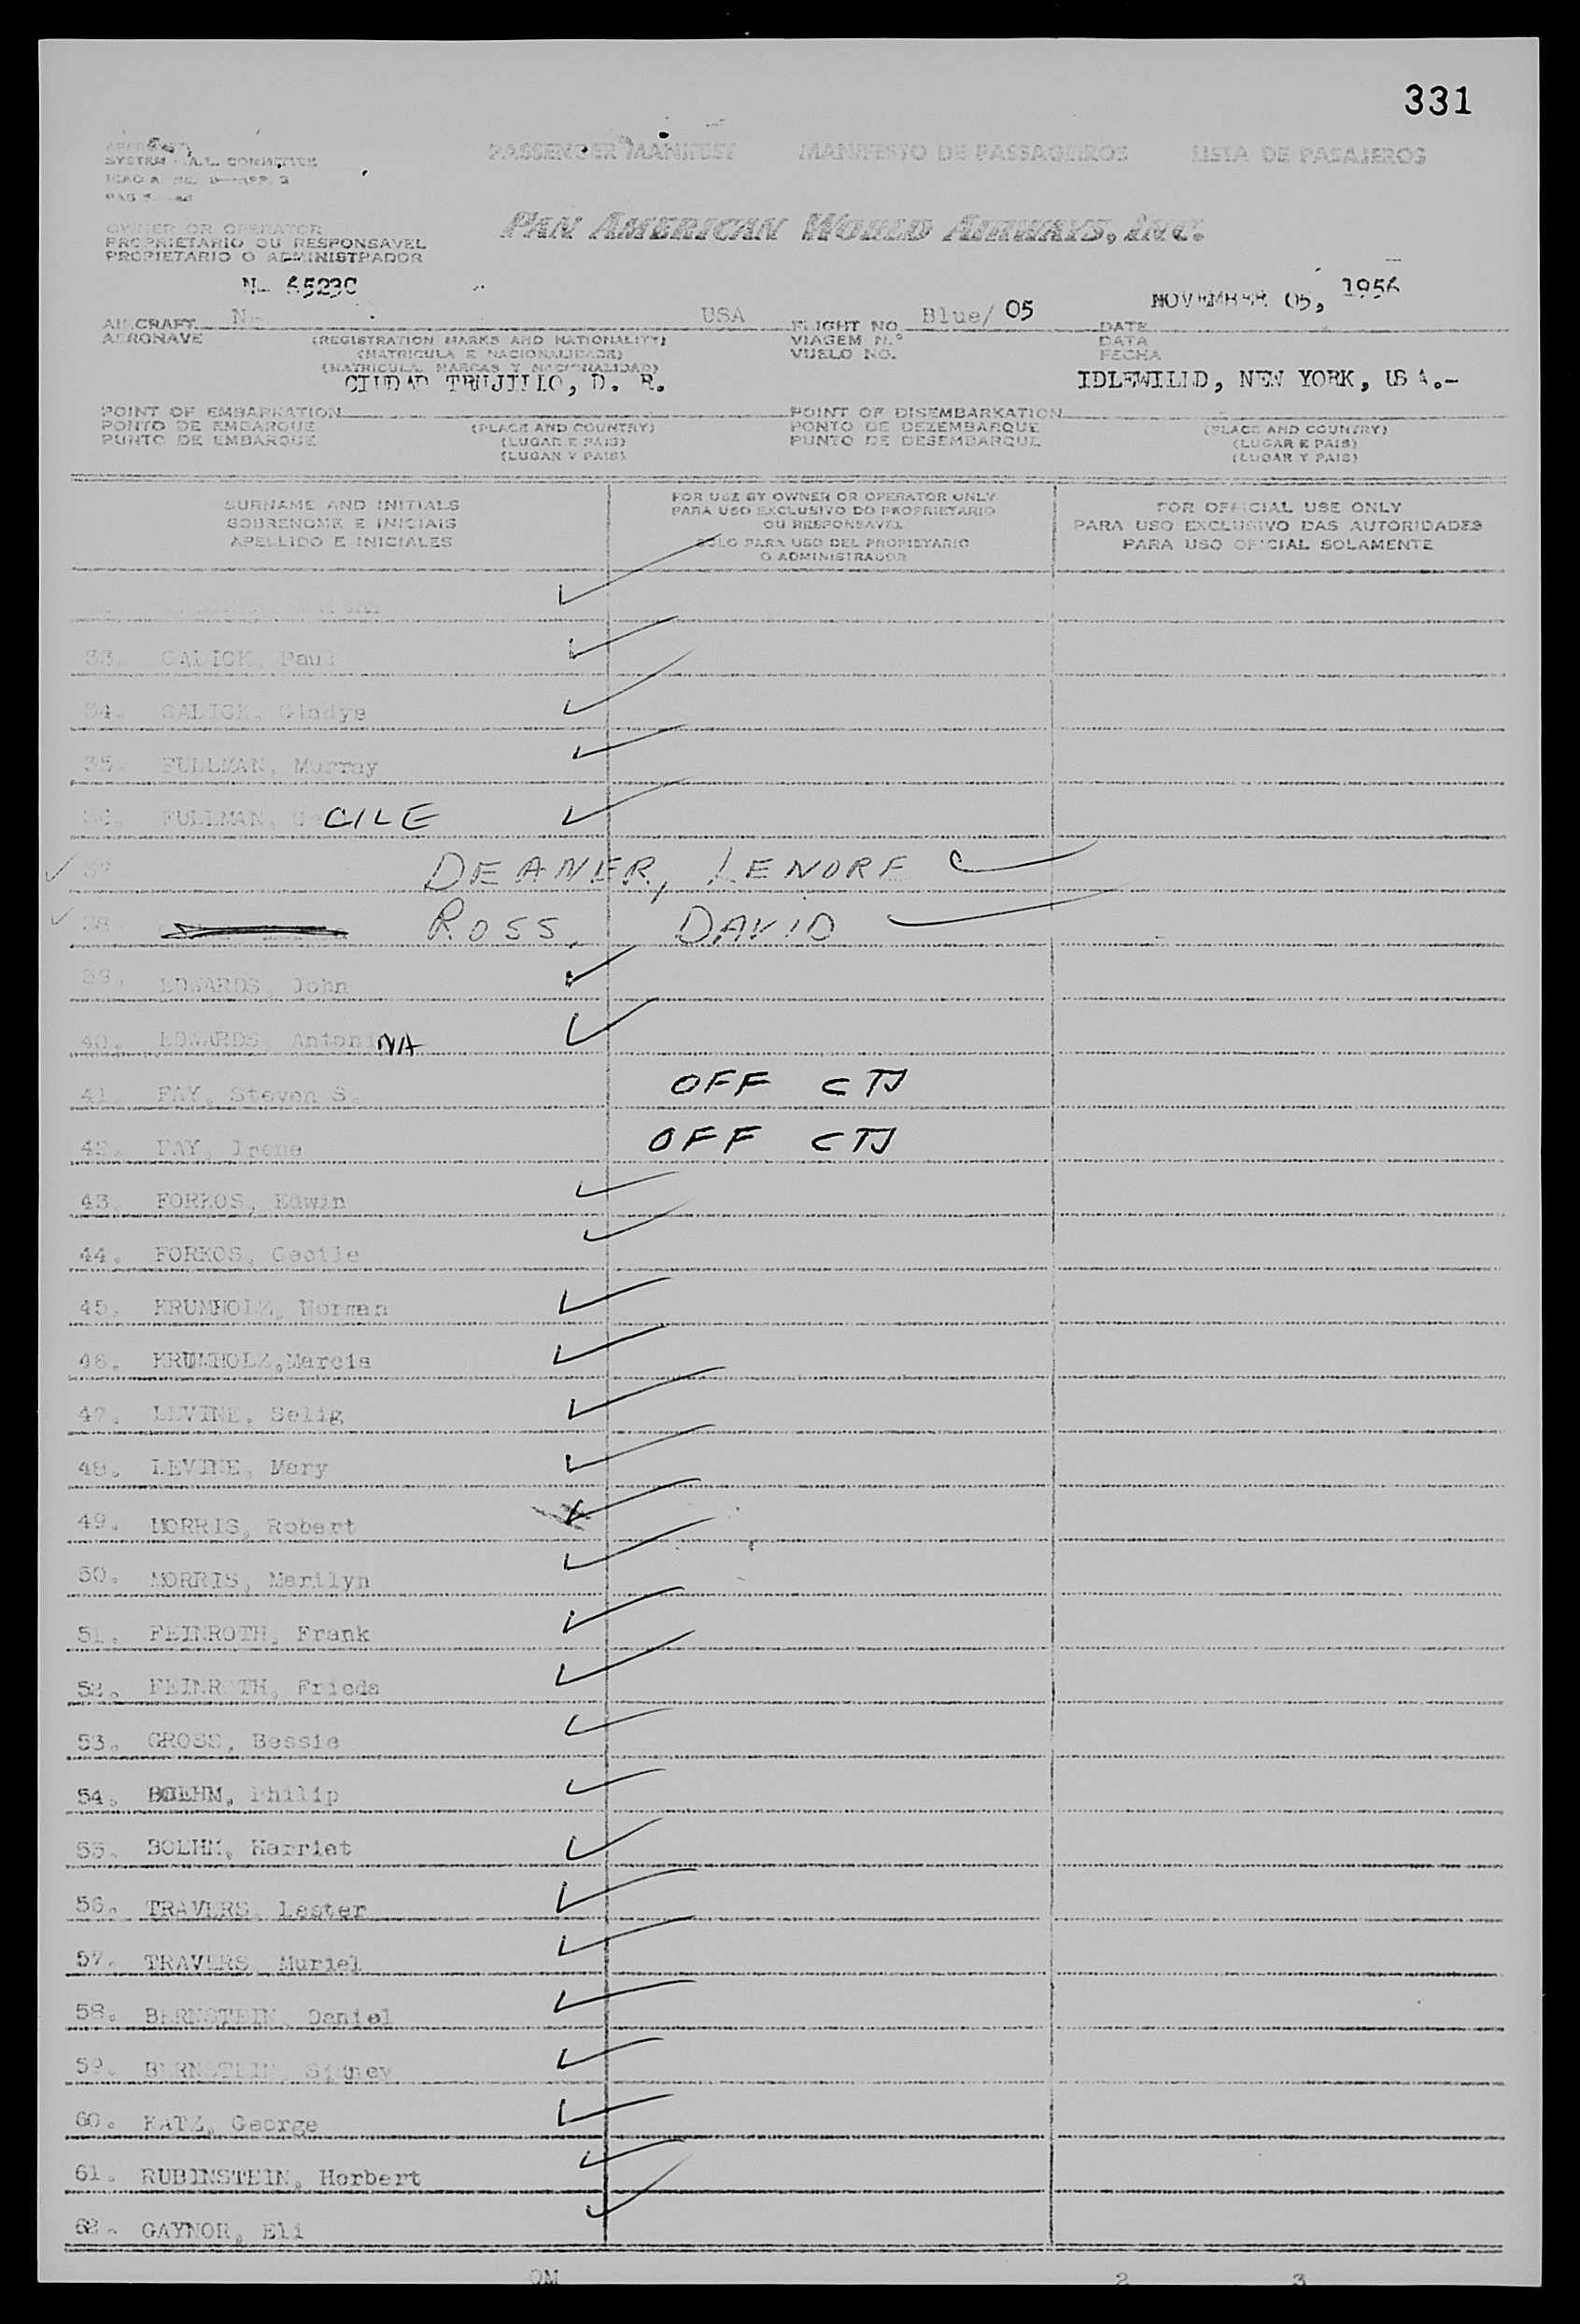 331
PASSENGER MANIFEST MANIFESTO DE PASSAGEIROS LISTA DE PASAJEROS
SYSTEM
OWNER OR OPERATOR
PROPRIETARIO OU RESPONSAVEL
PROPIETARIO O ADMINISTRADOR
PAN AMERICAN WORLD AIRWAYS, INC.
N- 6523C
NOVEMBER 05, 1956
AIRCRAFT N- USA FLIGHT NO. Blue/ 05 DATE
AERONAVE (REGISTRATION MARKS AND NATIONALITY) VIAGEM N.º DATA
(MATRICULA E NACIONALIDADE) VUELO NO. FECHA
(MATRICULA, MARCAS Y NACIONALIDAD)
CIUDAD TRUJILLO, D. R. IDLEWILLD, NEW YORK, USA.-
POINT OF EMBARKATION POINT OF DISEMBARKATION
PONTO DE EMBARQUE (PLACE AND COUNTRY) PONTO DE DEZEMBARQUE (PLACE AND COUNTRY)
PUNTO DE EMBARQUE (LUGAR E PAIS) PUNTO DE DESEMBARQUE (LUGAR E PAIS)
(LUGAR Y PAIS) (LUGAR Y PAIS)
SURNAME AND INITIALS
SOBRENOME E INICIAIS
APELLIDO E INICIALES
FOR USE BY OWNER OR OPERATOR ONLY
PARA USO EXCLUSIVO DO PROPRIETARIO
OU RESPONSAVEL
SOLO PARA USO DEL PROPIETARIO
O ADMINISTRADOR
FOR OFFICIAL USE ONLY
PARA USO EXCLUSIVO DAS AUTORIDADES
PARA USO OFICIAL SOLAMENTE
33. GALICK, Paul
34. GALICK, Gladys
35. FULLMAN, Murray
36. FULLMAN, CeCILE
37 DEANER, LENORE
38. ROSS, DAVID
39. EDWARDS, John
40. EDWARDS, AntoniNA
41. FAY, Steven S. OFF CTJ
42. FAY, Irene OFF CTJ
43. FORKOS, Edwin
44. FORKOS, Cecile
45. KRUMHOLZ, Norman
46. KRUMHOLZ,Marcia
47. LEVINE, Selig
48. LEVINE, Mary
49. MORRIS, Robert
50. MORRIS, Marilyn
51. FEINROTH, Frank
52. FEINROTH, Frieda
53. GROSS, Bessie
54. BOEHM, Philip
55. BOEHM, Harriet
56. TRAVERS, Lester
57. TRAVERS, Muriel
58. BERNSTEIN, Daniel
59. BERNSTEIN, Sidney
60. KATZ, George
61. RUBINSTEIN, Herbert
62. GAYNOR, Eli
OM 2 3